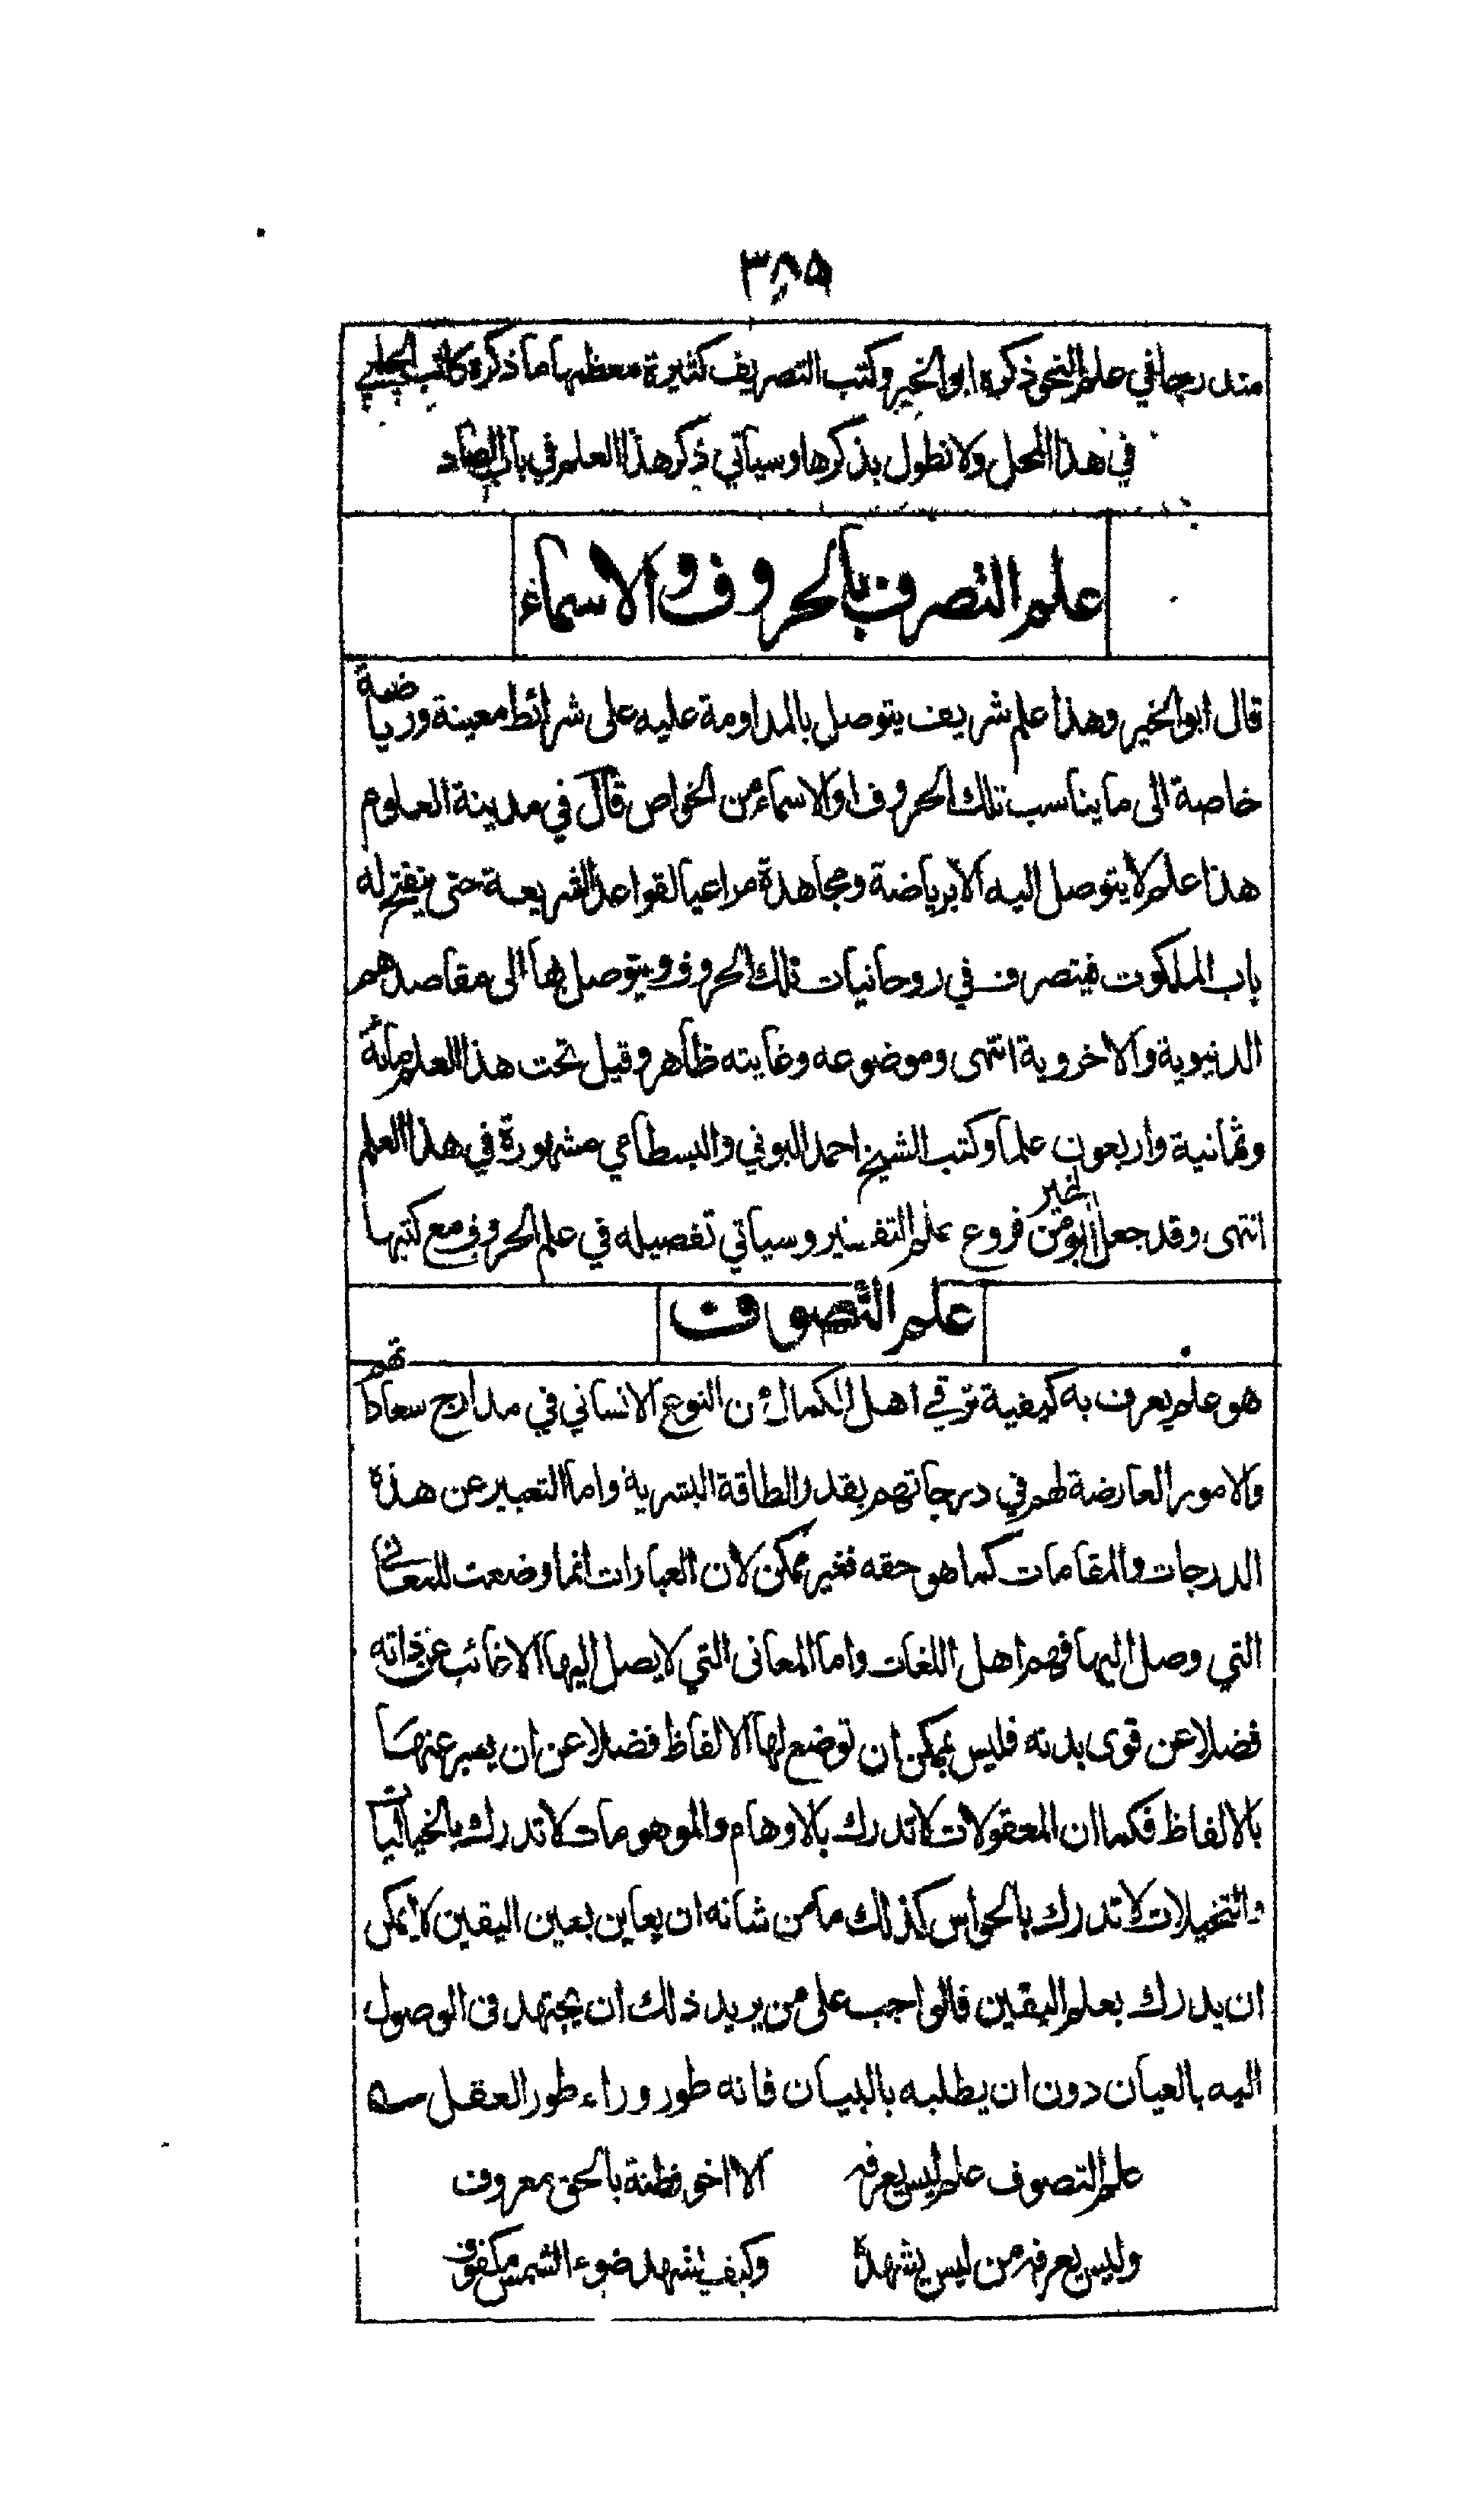 ٣٨٥
مندرجا في علم النحو ذكره ابو الخير وكتب التصريف كثيرة معظمها ما ذكره كاتب الجلبي
في هذا المحل ولا نطول بذكرها وسيأتي ذكر هذا العلم في باب الصاد
علم التصرف بالحروف والاسماء
قال ابو الخير وهذا علم شريف يتوصل بالمداومة عليه على شرائط معينة ورياضة
خاصة الى ما يناسب تلك الحروف او الاسماء من الخواص قال في مدينة العلوم
هذا علم لا يتوصل اليه الا برياضة ومجاهدة مراعيا لقواعد الشريعة حتى ينفتح له
باب الملكوت فيتصرف في روحانيات تلك الحروف ويتوصل بها الى مقاصدهم
الدنيوية والاخروية انتهى وموضوعه وغايته ظاهر وقيل تحت هذا العلم مائة
وثمانية واربعون علما وكتب الشيخ احمد البوني والبسطامي مشهورة في هذا العلم
انتهى وقد جعل ابو الخير من فروع علم التفسير وسياتي تفصيله في علم الحروف مع كتبها
علم التصوف
هو علم يعرف به كيفية ترقي اهل الكمال من النوع الانساني في مدارج سعاداتهم
والامور العارضة لهم في درجاتهم بقدر الطاقة البشرية واما التعبير عن هذه
الدرجات والمقامات كما هو حقه فغير ممكن لان العبارات انما وضعت للمعاني
التي وصل اليها فهم اهل اللغات واما المعانى التي لا يصل اليها الا غائب عن ذاته
فضلا عن قوى بدنه فليس بممكن ان توضع لها الالفاظ فضلا عن ان يعبر عنها
بالالفاظ فكما ان المعقولات لا تدرك بالاوهام والموهومات لا تدرك بالخياليات
والتخيلات لا تدرك بالحواس كذلك ما من شانه ان يعاين بعين اليقين لا يمكن
ان يدرك بعلم اليقين فالواجب على من يريد ذلك ان يجتهد فى الوصول
اليه بالعيان دون ان يطلبه بالبيان فانه طور وراء طور العقل
علم التصوف علم ليس يعرفه الا اخو فطنة بالحق معروف
وليس يعرفه من ليس يشهده وكيف يشهد ضوء الشمس مكفوف